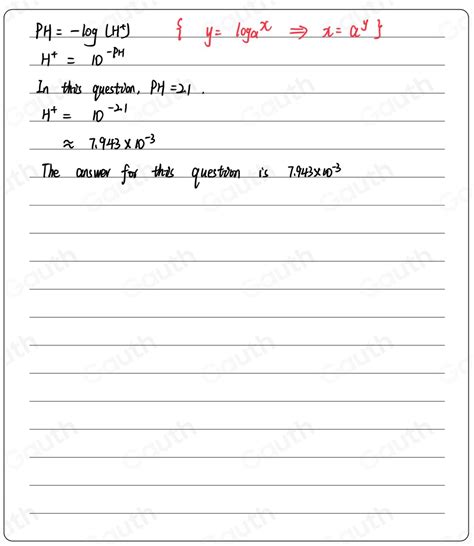 PH = -log (H⁺) { y = logₐx ⇒ x = a^y }
H⁺ = 10^-PH
In this question, PH = 2.1 .
H⁺ = 10^-2.1
≈ 7.943 × 10^-3
The answer for this question is 7.943×10^-3